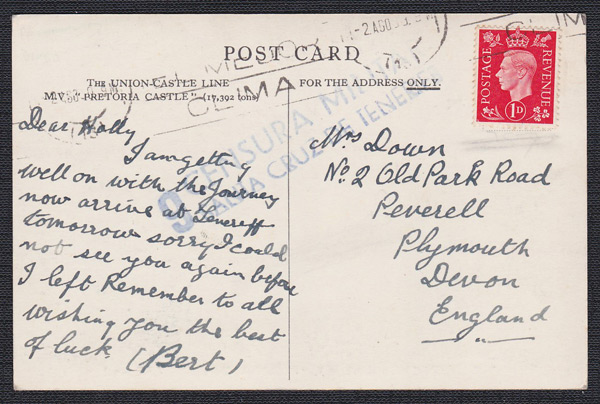 EL MEJOR
CLIMA
2 AGO 39
POST CARD
The UNION-CASTLE LINE
M.V. "PRETORIA CASTLE" (17,392 tons)
FOR THE ADDRESS ONLY.
POSTAGE
REVENUE
1D
9 CENSURA MILITAR
SANTA CRUZ DE TENERIFE
Dear Holly
I am getting
well on with the Journey
now arrive at Teneriff
tomorrow sorry I could
not see you again before
I left Remember to all
wishing you the best
of luck (Bert)
Mrs Down
No. 2 Old Park Road
Peverell
Plymouth
Devon
England